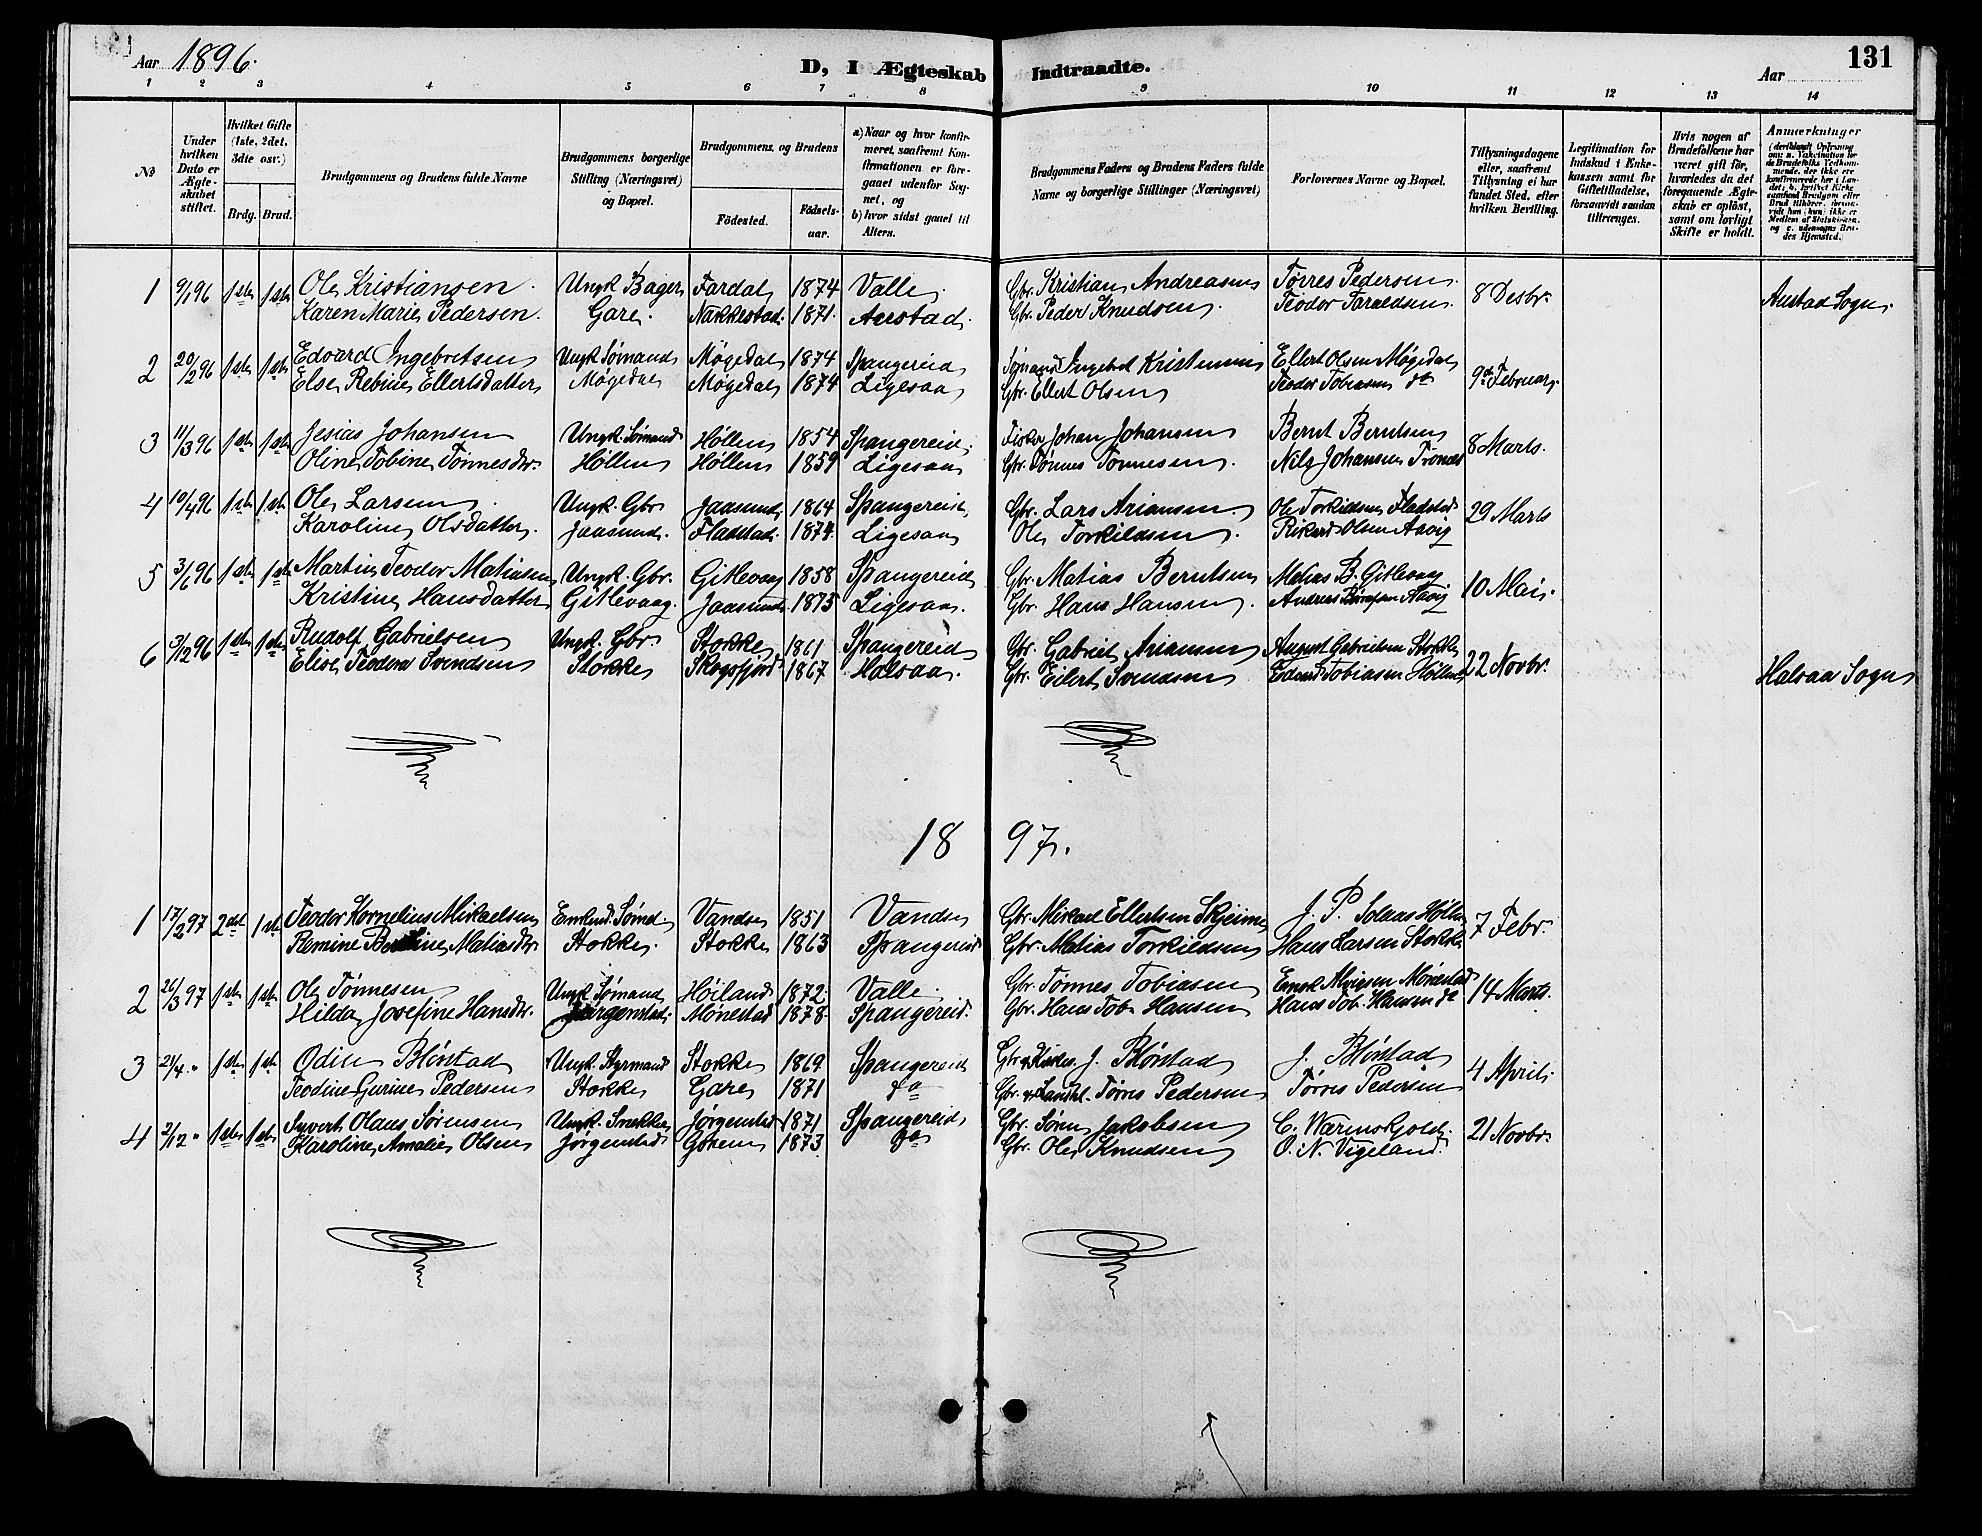 Aar 1896. D, I Ægteskab Indtraadte. Aar 131
1 2 3 4 5 6 7 8 9 10 11 12 13 14
No
Under hvilken Dato er Ægteskabet stiftet.
Hvilket Gifte (1ste, 2det, 3die osv.)
Brdg. Brud.
Brudgommens og Brudens fulde Navne
Brudgommens borgerlige Stilling (Næringsvei) og Bopæl.
Brudgommens og Brudens
Födested. Födselsaar.
a) Naar og hvor konfirmeret, saafremt Konfirmationen er foregaaet udenfor Sognet, og
b) hvor sidst gaaet til Alters.
Brudgommens Faders og Brudens Faders fulde Navne og borgerlige Stillinger (Næringsvei)
Forlovernes Navne og Bopæl.
Tillysningsdagene eller, saafremt Tillysning ei har fundet Sted, efter hvilken Bevilling.
Legitimation for Indskud i Enkekassen samt for Giftetilladelse, forsaavidt saadan tiltrænges.
Hvis nogen af Brudefolkene har været gift för, hvorledes da det foregaaende Ægteskab er oplöst, samt om lovligt Skifte er holdt.
Anmærkninger
1 9/1 96 1ste 1ste Ole Kristiansen. Ungk Bager Fardal 1874 Valle. Gbr. Kristian Andreasen Tørres Pedersen. 8 Desbr.
Karen Marie Pedersen. Gare. Nakkestad. 1871. Austad. Gbr. Peder Knudsen. Teodor Taraldsen. Austad Sogn.
2 20/2 96 1ste 1ste Edvard Ingebretsen Ungk Sømand Møgedal 1874 Spangereid Sømand Ingebret Kristensen Ellert Olsen Møgedal 9de Februar.
Else Rebine Ellertsdatter Møgedal Møgedal 1874 Ligesaa Gbr. Ellert Olsen Teodor Tobiasen do
3 11/3 96 1ste 1ste Jesias Johansen Ungk. Sømand Høllen 1854 Spangereid. Fisker Johan Johansen Bernt Berntsen 8 Marts.
Oline Tobine Tønnesdtr. Høllen Høllen 1859 Ligesaa Gbr. Tønnes Tønnesen. Nils Johansen
4 10/4 96 1ste 1ste Ole Larsen. Ungk. Gbr Jaasund 1864 Spangereid Gbr. Lars Ariansen. Ole Torkildsen Fladstad 29 Marts
Karoline Olsdatter. Jaasund. Fladstad. 1874. Ligesaa Ole Torkildsen. Rikard Olsen Aavig
5 3/6 96 1ste 1ste Martin Teodor Matiasen Ungk. Gbr. Gitlevaag 1858 Spangereid Gbr. Matias Berntsen Matias B. Gitlevaag 10 Mai.
Kristine Hansdatter Gitlevaag. Jaasund 1875 Ligesaa. Gbr. Hans Hansen. Andreas Aavig
6 3/12 96 1ste 1ste Rudolf Gabrielsen Ungk. Gbr. Stokke 1861 Spangereid Gbr. Gabriel Ariansen August Gabrielsen Stokke 22 Novbr.
Elise Teodora Svendsen Stokke Skogsfjord 1867 Halsaa. Gbr. Eilert Svendsen Edvard Tobiasen Høllen Halsaa Sogn
1897.
1 17/2 97 2det 1ste Teodor Kornelius Mikaelsen Enkmd. Sømd. Vandsø 1851 Vandsø Gbr. Mikael Ellertsen Skjeime J. P. Solaas Høllen 7 Febr.
Remine Matiasdtr. Stokke. Stokke 1863 Spangereid Gbr. Matias Torkildsen Hans Larsen Stokke
2 26/3 97 1ste 1ste Ole Tønnesen Ungk Sømand Høiland 1872. Valle. Gbr. Tønnes Tobiasen Mønestad 14 Marts.
Hilda Josefine Hansdtr. Jørgenstad. Mønestad 1878. Spangereid. Gbr. Hans Tob. Hansen Hans Tob. Hansen do
3 21/4 " 1ste 1ste Odin Blørstad Ungk. Styrmand Stokke 1869 Spangereid J. Blørstad J. Blørstad 4 April.
Teodine Gurine Pedersen Stokke Gare 1871 do Gbr. & Landhl. Tørres Pedersen Tørres Pedersen
4 2/12 " 1ste 1ste Syvert Olaus Sørensen Ungk. Snekker Jørgenstad 1871 Spangereid Gbr. Søren Jakobsen C. Wærnskjold. 21 Novbr.
Karoline Amalie Olsen Jørgenstad Gotem 1873 do Gbr. Ole Knudsen O. N. Vigeland.